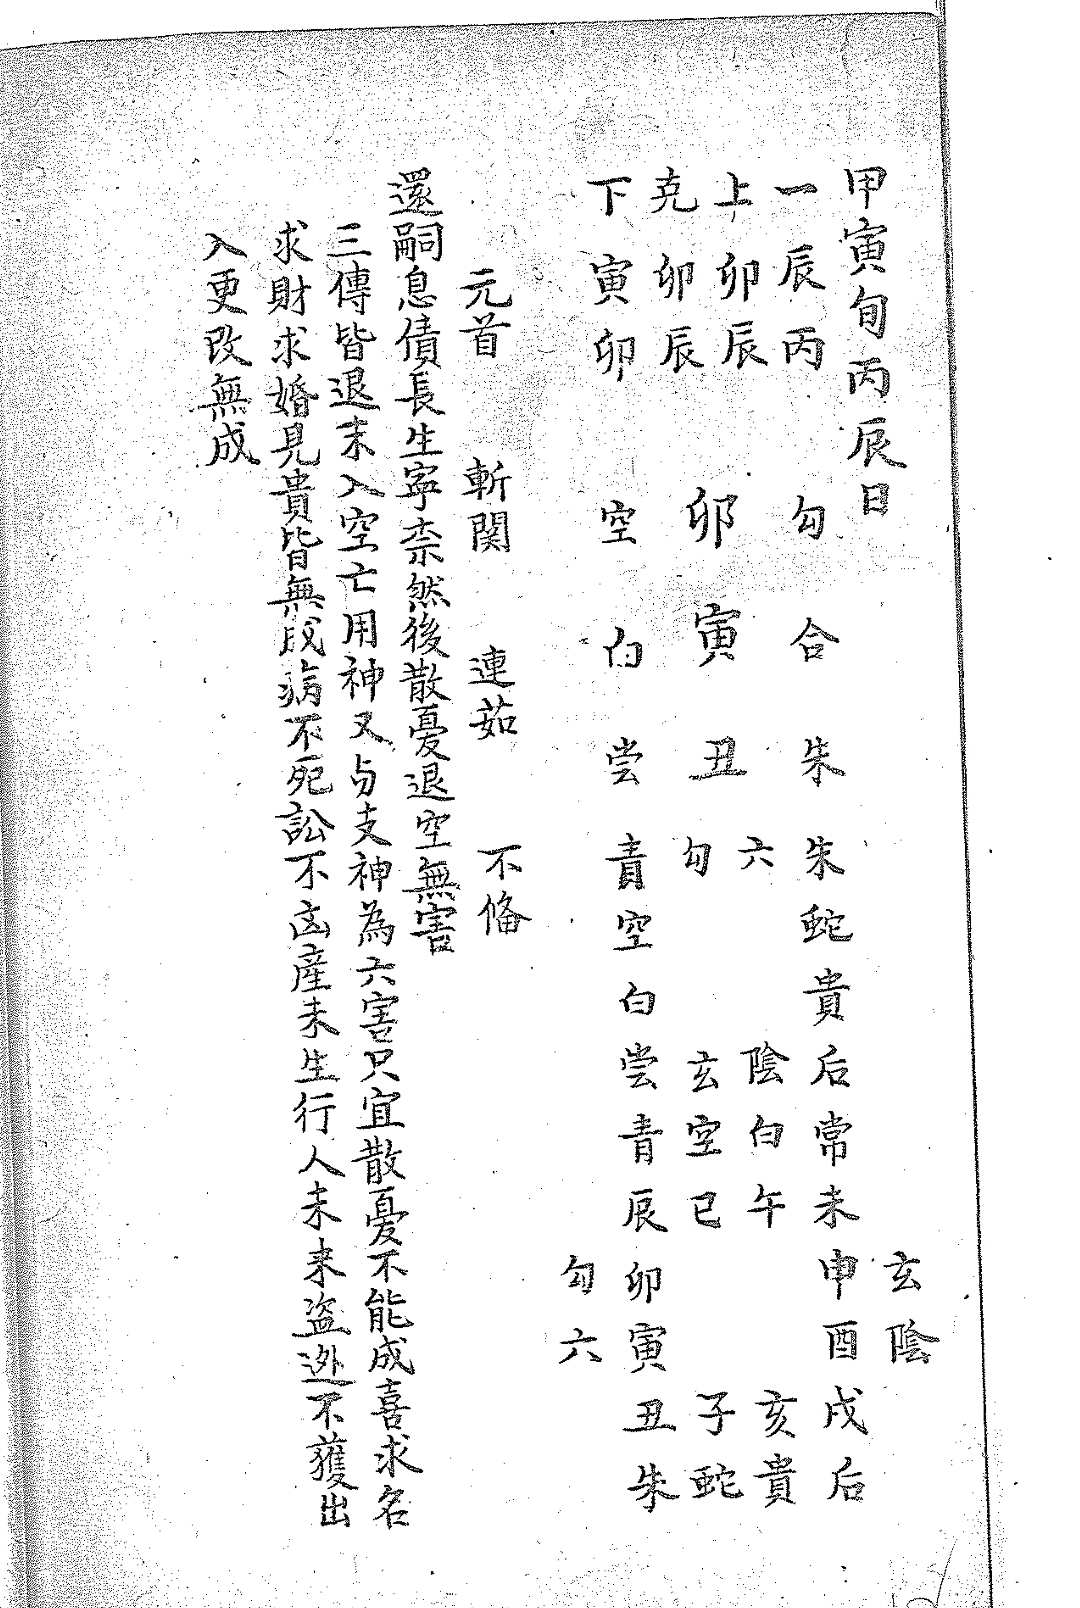 甲寅旬丙辰日
一辰丙　勾　合　朱　朱蛇貴后常未申酉戌后
玄陰
上卯辰　六　陰白午　亥貴
克卯辰　卯　寅　丑　勾　玄空巳　子蛇
下寅卯　空　白　尝　青空白尝青辰卯寅丑朱
勾六
元首　斬関　連茹　不俻
還嗣息債長生寧柰然後散憂退空無害
三傳皆退末入空亡用神又与支神為六害只宜散憂不能成喜求名
求財求婚見貴皆無成病不死訟不凶産未生行人未来盗迯不獲出
入更改無成